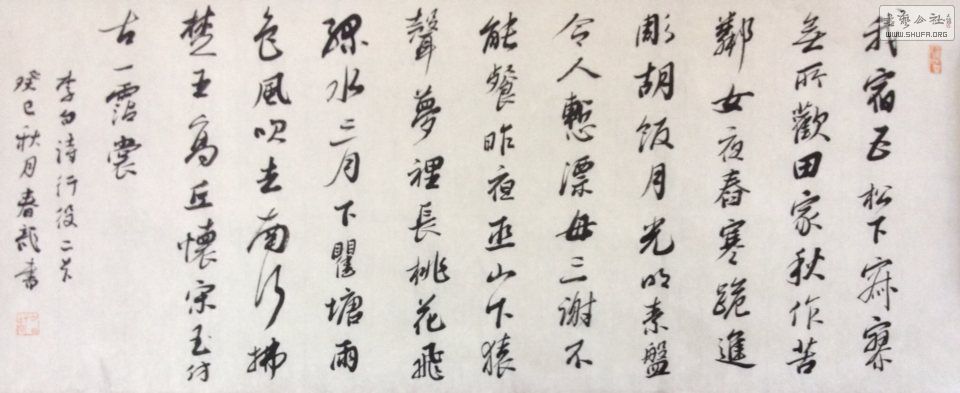 我宿五松下寂寥
無所歡田家秋作苦
鄰女夜舂寒跪進
彫胡飯月光明素盤
令人慙漂母三謝不
能餐昨夜巫山下猿
聲夢裡長桃花飛
綠水三月下瞿塘雨
色風吹去南行拂
楚王高丘懷宋玉訪
古一霑裳
李白詩行役二首
癸巳秋月春龍書
書藝公社
WWW.SHUFA.ORG